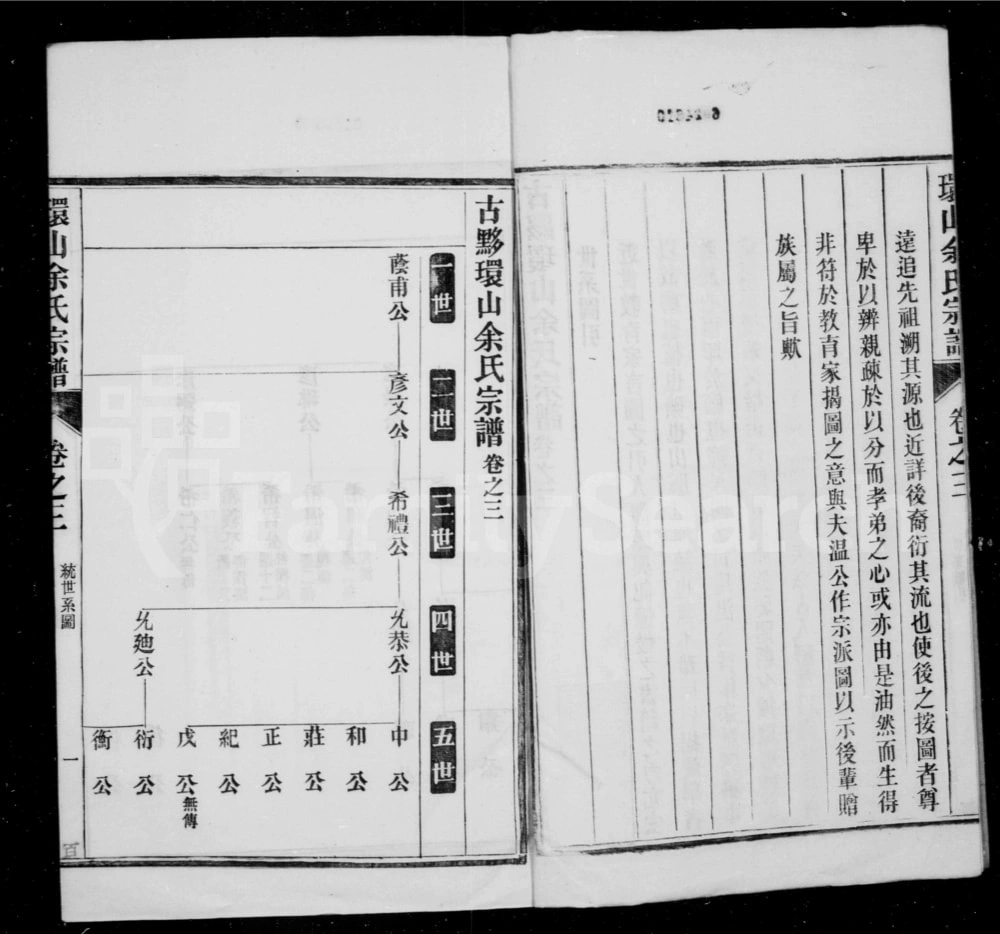 環山余氏宗譜
卷之三
遠追先祖溯其源也近詳後裔衍其流也使後之按圖者尊
卑於以辨親疎於以分而孝弟之心或亦由是油然而生得
非符於教育家揭圖之意與夫温公作宗派圖以示後輩贈
族屬之旨歟
古黟環山余氏宗譜 卷之三
一世
二世
三世
四世
五世
蔭甫公
彦文公
希禮公
允恭公
中公
和公
莊公
正公
紀公
戊公 無傳
允廸公
衍公
衡公
環山余氏宗譜
卷之三
統世系圖
一
百
FamilySearch